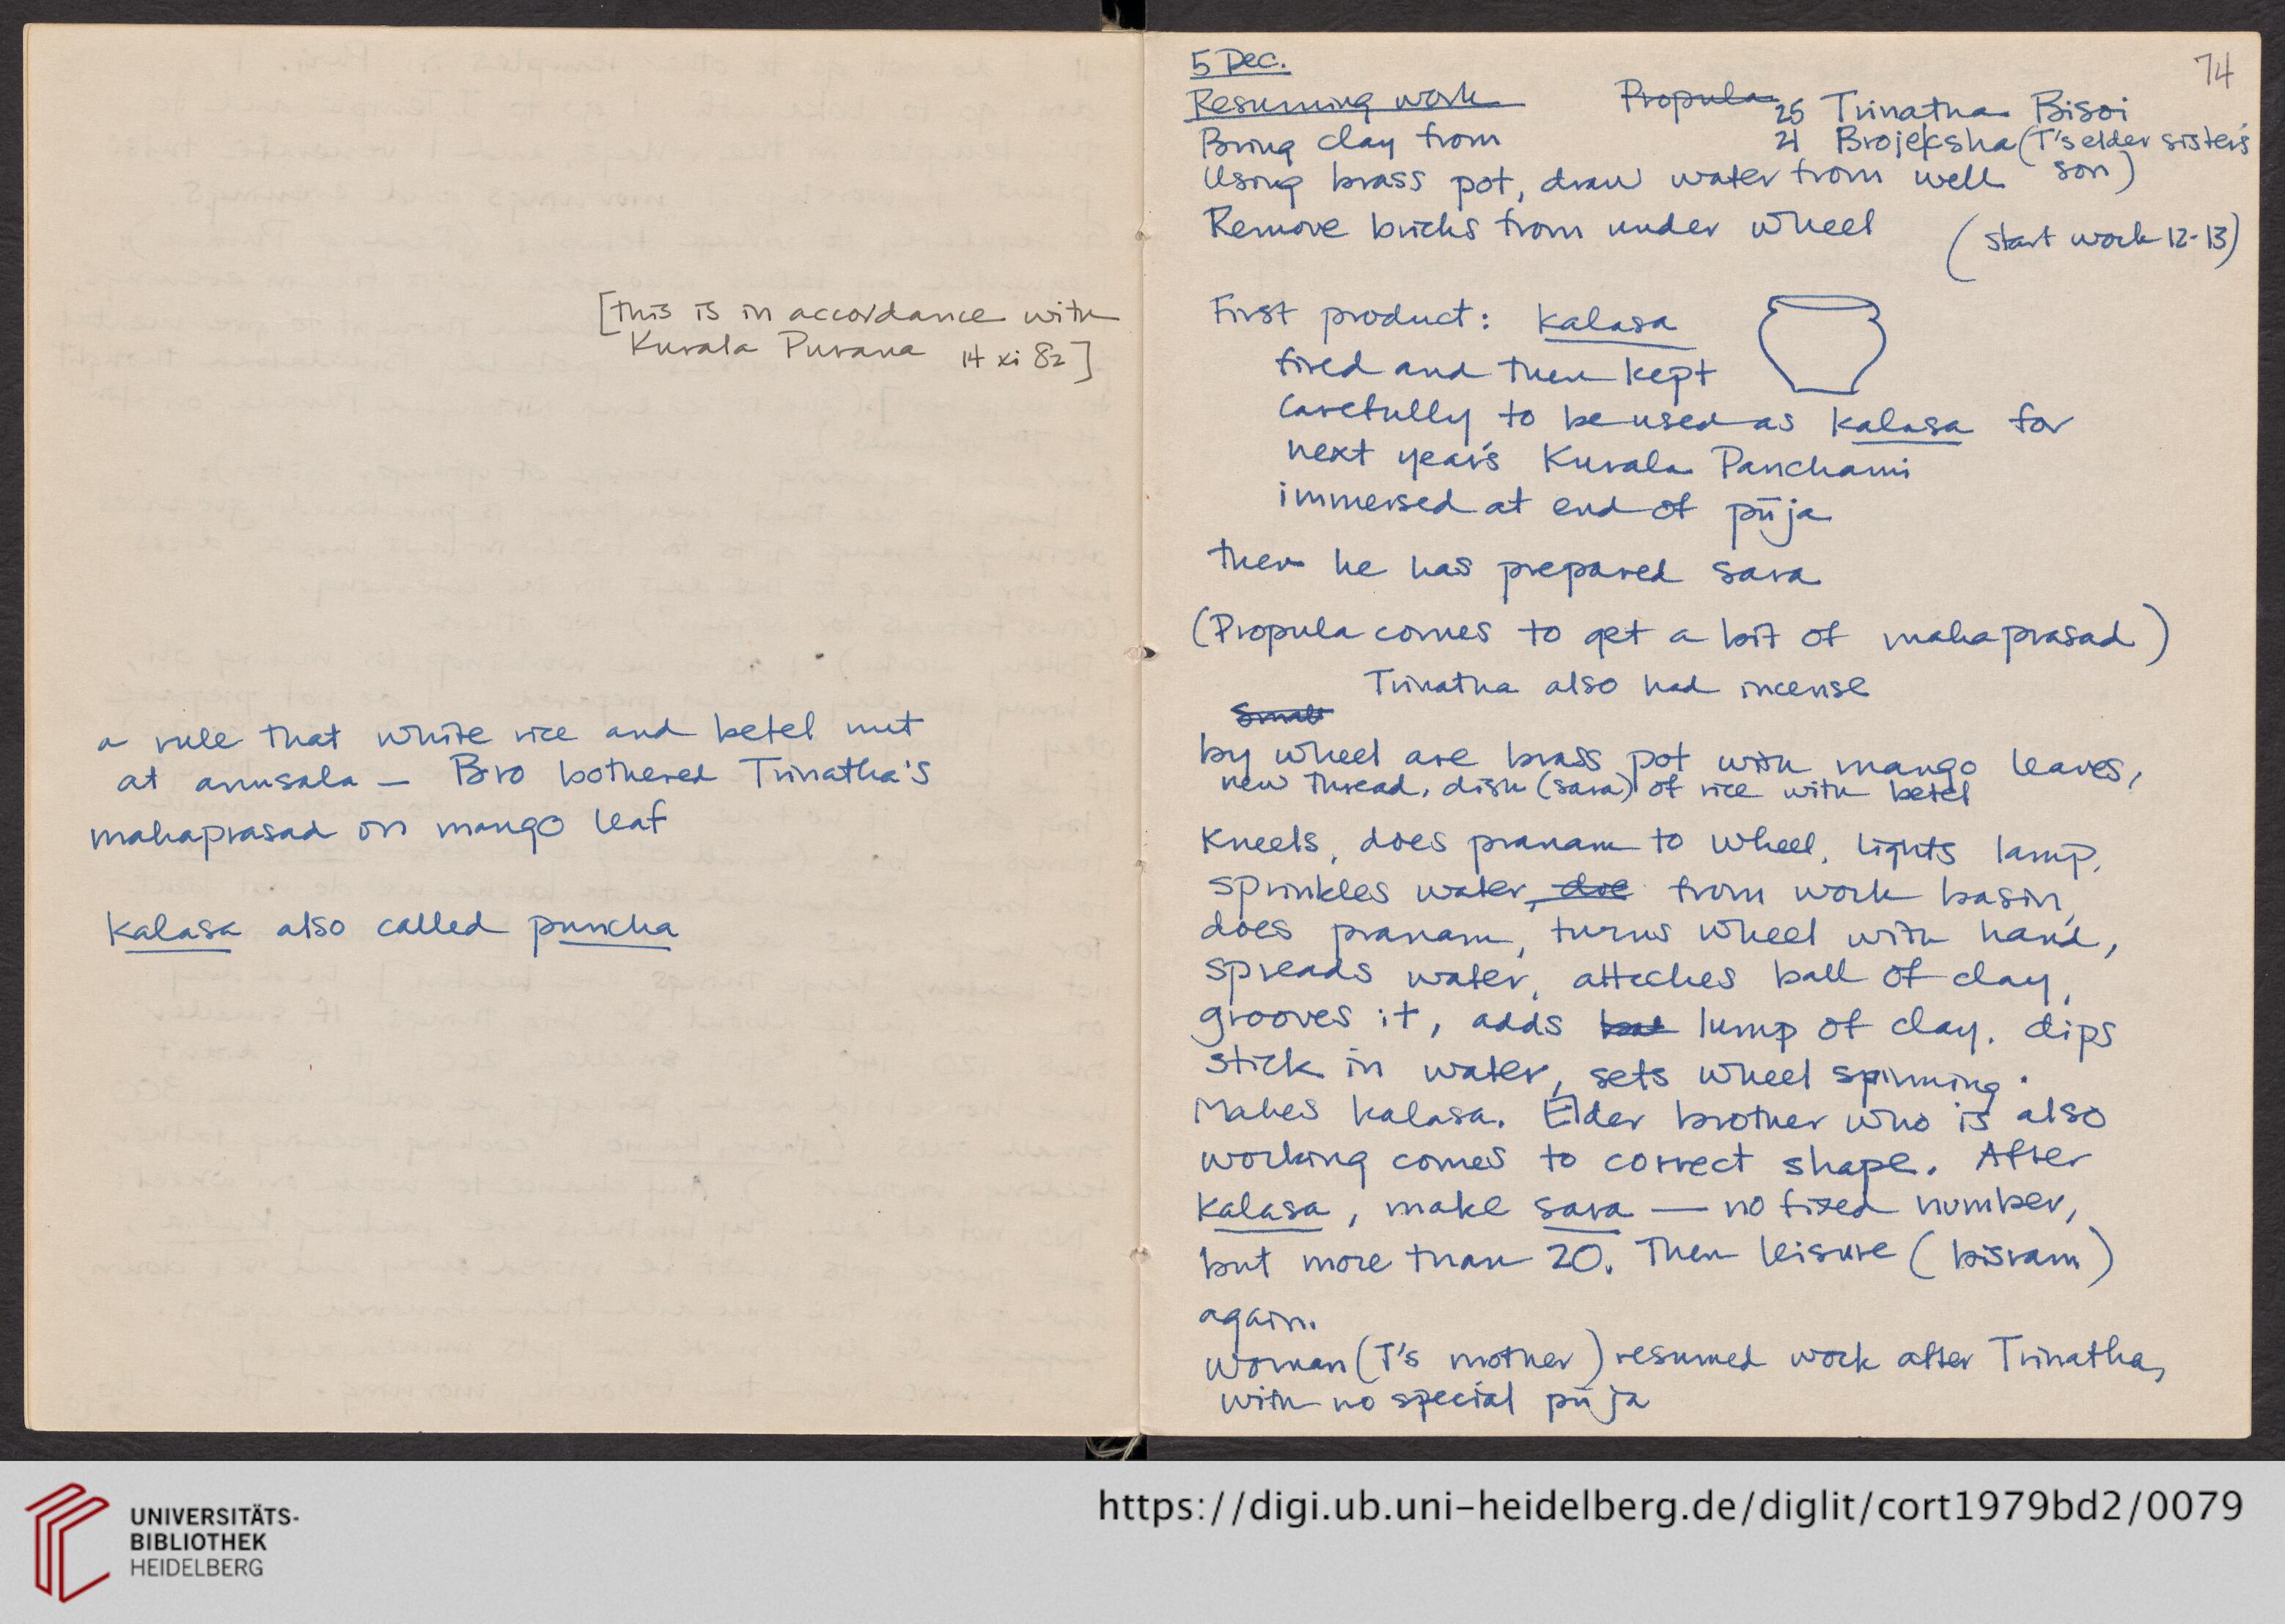 [this is in accordance with
Kurala Purana 14 xi 82]
a rule that white rice and betel nut
at anusala – Bro bothered Trinatha's
mahaprasad on mango leaf
kalasa also called puncha
74
5 Dec.
Resuming work Propula 25 Trinatha Bisoi
Bring clay from 21 Brojeksha (T's elder sister's
Using brass pot, draw water from well son)
Remove bricks from under wheel (start work 12-13)
First product: kalasa
fired and then kept
carefully to be used as kalasa for
next year's Kurala Panchami
immersed at end of pūja
then he has prepared sara
(Propula comes to get a bit of mahaprasad)
Trinatha also had incense
Small
by wheel are brass pot with mango leaves,
new thread, dish (sara) of rice with betel
Kneels, does pranam to wheel, lights lamp,
sprinkles water, doe from work basin,
does pranam, turns wheel with hand,
spreads water, attaches ball of clay,
grooves it, adds bal lump of clay. dips
stick in water, sets wheel spinning.
Makes kalasa. Elder brother who is also
working comes to correct shape. After
kalasa, make sara — no fixed number,
but more than 20. Then leisure (bisram)
again.
Woman (T's mother) resumed work after Trinatha,
with no special pūja
UNIVERSITÄTS-
BIBLIOTHEK
HEIDELBERG
https://digi.ub.uni-heidelberg.de/diglit/cort1979bd2/0079